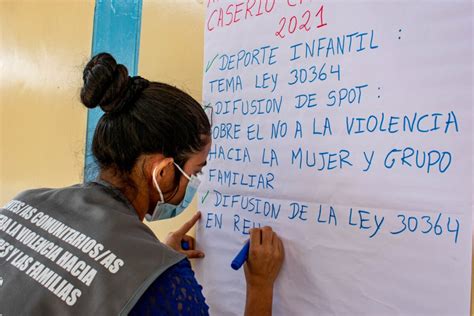 CASERIO
2021
✓DEPORTE INFANTIL :
TEMA LEY 30364
✓DIFUSION DE SPOT :
SOBRE EL NO A LA VIOLENCIA
HACIA LA MUJER Y GRUPO
FAMILIAR
✓DIFUSIÓN DE LA LEY 30364
EN REU
COMUNITARIOS/AS
A VIOLENCIA HACIA
Y LAS FAMILIAS